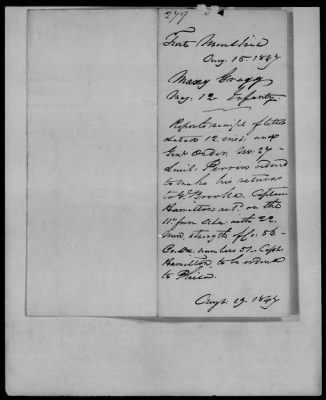 279
Fort Moultrie
Aug. 15. 1847
Maxcy Gregg
Maj. 12 Infantry.
Reports receipt of letter
dated 12 inst. and
Genl Order No. 27 -
Lieut. Perrin ordered
to make his returns
to G. Brooke. Captain
Hamilton on the
11th from with 22
men, strength of Co. 56 -
Co. numbers 51. Capt.
Hamilton, to be ordered
to
Augt. 19. 1847